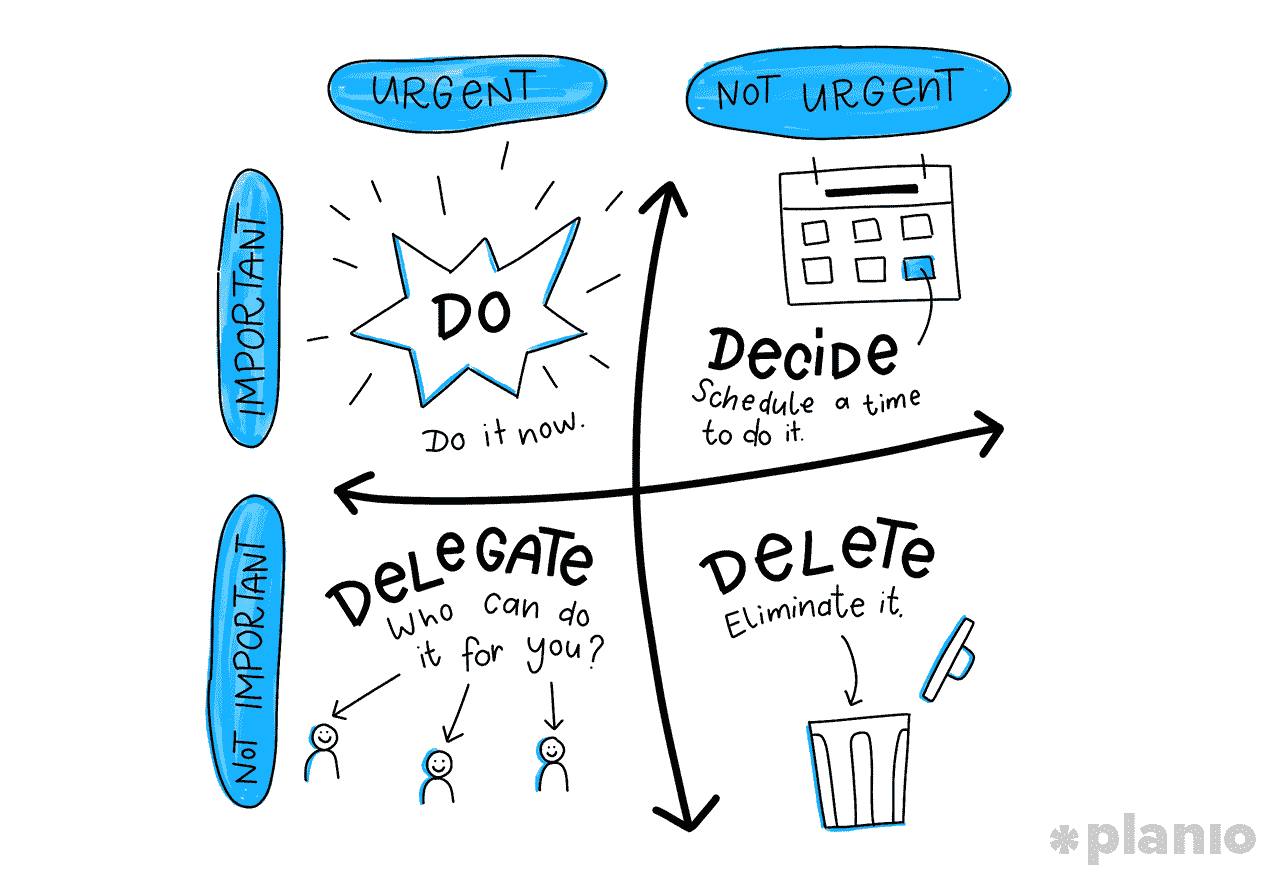 URGENT
NOT URGENT
IMPORTANT
DO
Do it now.
DECIDE
Schedule a time
to do it.
NOT IMPORTANT
DELEGATE
Who can do
it for you?
DELETE
Eliminate it.
*planio